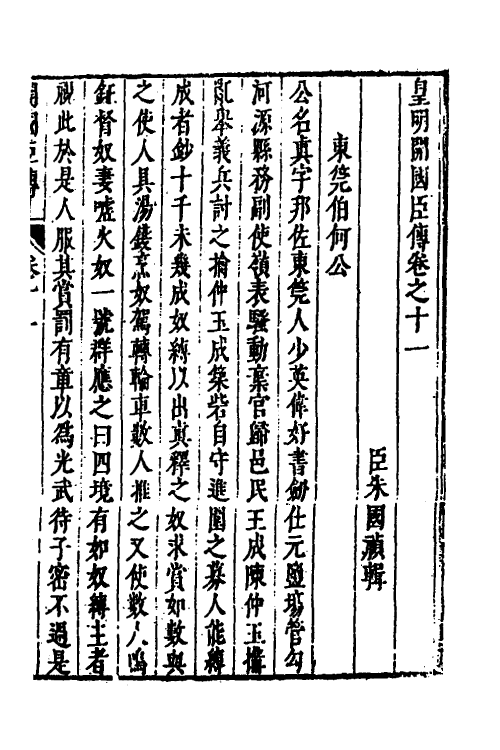 皇明開國臣傳卷之十一
臣朱國禎輯
東筦伯何公
公名真字邦佐東筦人少英偉好書劒仕元鹽塲管勾
河源縣務副使嶺表騷動棄官歸邑民王成陳仲玉搆
亂舉義兵討之擒仲玉成築砦自守進圍之募人能縛
成者鈔十千未幾成奴縛以出真釋之奴求賞如數與
之使人具湯鑊烹奴駕轉輪車數人推之又使數人鳴
鉦督奴妻噓火奴一號群應之曰四境有如奴縛主者
視此於是人服其賞罰有章以為光武待子密不過是
開國臣傳 卷十一